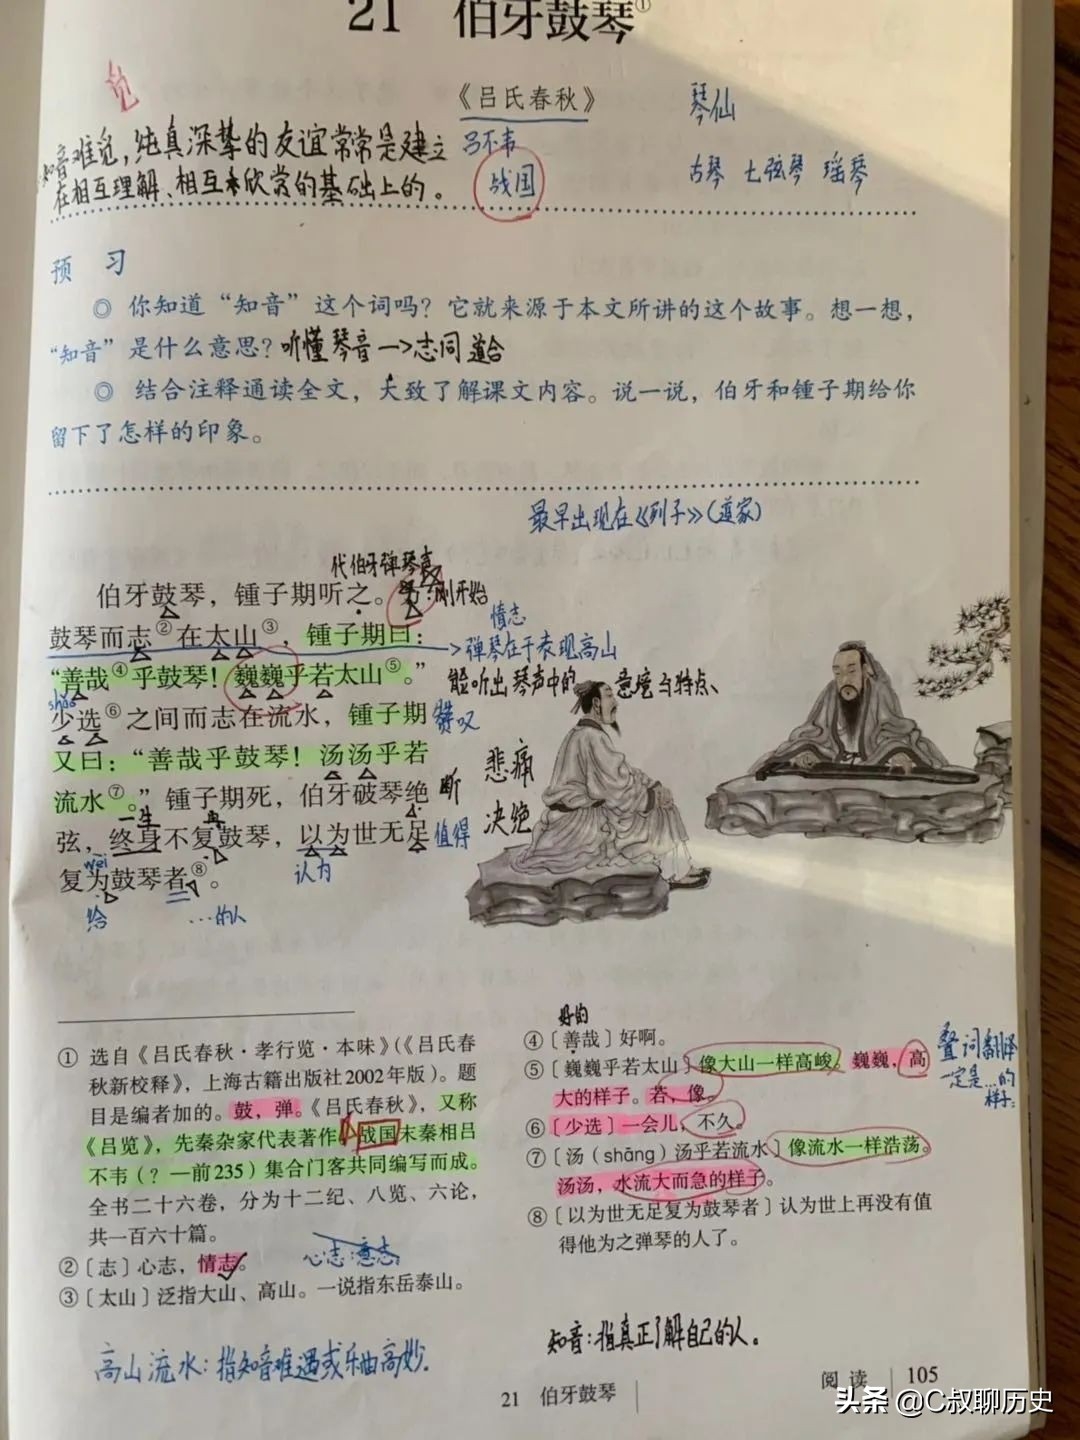 21 伯牙鼓琴①
《吕氏春秋》
琴仙
觅
知音难觅，纯真深挚的友谊常常是建立
在相互理解、相互欣赏的基础上的。
吕不韦
战国
古琴 七弦琴 瑶琴
预 习
◎ 你知道“知音”这个词吗？它就来源于本文所讲的这个故事。想一想，
“知音”是什么意思？听懂琴音→志同道合
◎ 结合注释通读全文，大致了解课文内容。说一说，伯牙和锺子期给你
留下了怎样的印象。
最早出现在《列子》（道家）
代伯牙弹琴声
伯牙鼓琴，锺子期听之。方：刚开始
情志
鼓琴而志②在太山③，锺子期曰：
弹琴在于表现高山
“善哉④乎鼓琴！巍巍乎若太山⑤。”
能听出琴声中的意境与特点、
shǎo
少选⑥之间而志在流水，锺子期
赞叹
又曰：“善哉乎鼓琴！汤汤乎若
悲痛
流水⑦。”锺子期死，伯牙破琴绝
断
决绝
一生 再
弦，终身不复鼓琴，以为世无足
值得
wèi
认为
复为鼓琴者⑧。
给 …的人
① 选自《吕氏春秋·孝行览·本味》（《吕氏春
秋新校释》，上海古籍出版社2002年版）。题
目是编者加的。鼓，弹。《吕氏春秋》，又称
《吕览》，先秦杂家代表著作，战国末秦相吕
不韦（？—前235）集合门客共同编写而成。
全书二十六卷，分为十二纪、八览、六论，
共一百六十篇。
②〔志〕心志，情志。
心志：意志
③〔太山〕泛指大山、高山。一说指东岳泰山。
好的
④〔善哉〕好啊。
⑤〔巍巍乎若太山〕像大山一样高峻。巍巍，高
大的样子。若，像。
⑥〔少选〕一会儿，不久。
⑦〔汤（shāng）汤乎若流水〕像流水一样浩荡。
汤汤，水流大而急的样子。
⑧〔以为世无足复为鼓琴者〕认为世上再没有值
得他为之弹琴的人了。
叠词翻译
一定是…的
样子：
高山流水：指知音难遇或乐曲高妙.
知音：指真正了解自己的人。
21 伯牙鼓琴
阅 读 105
头条 @C叔聊历史